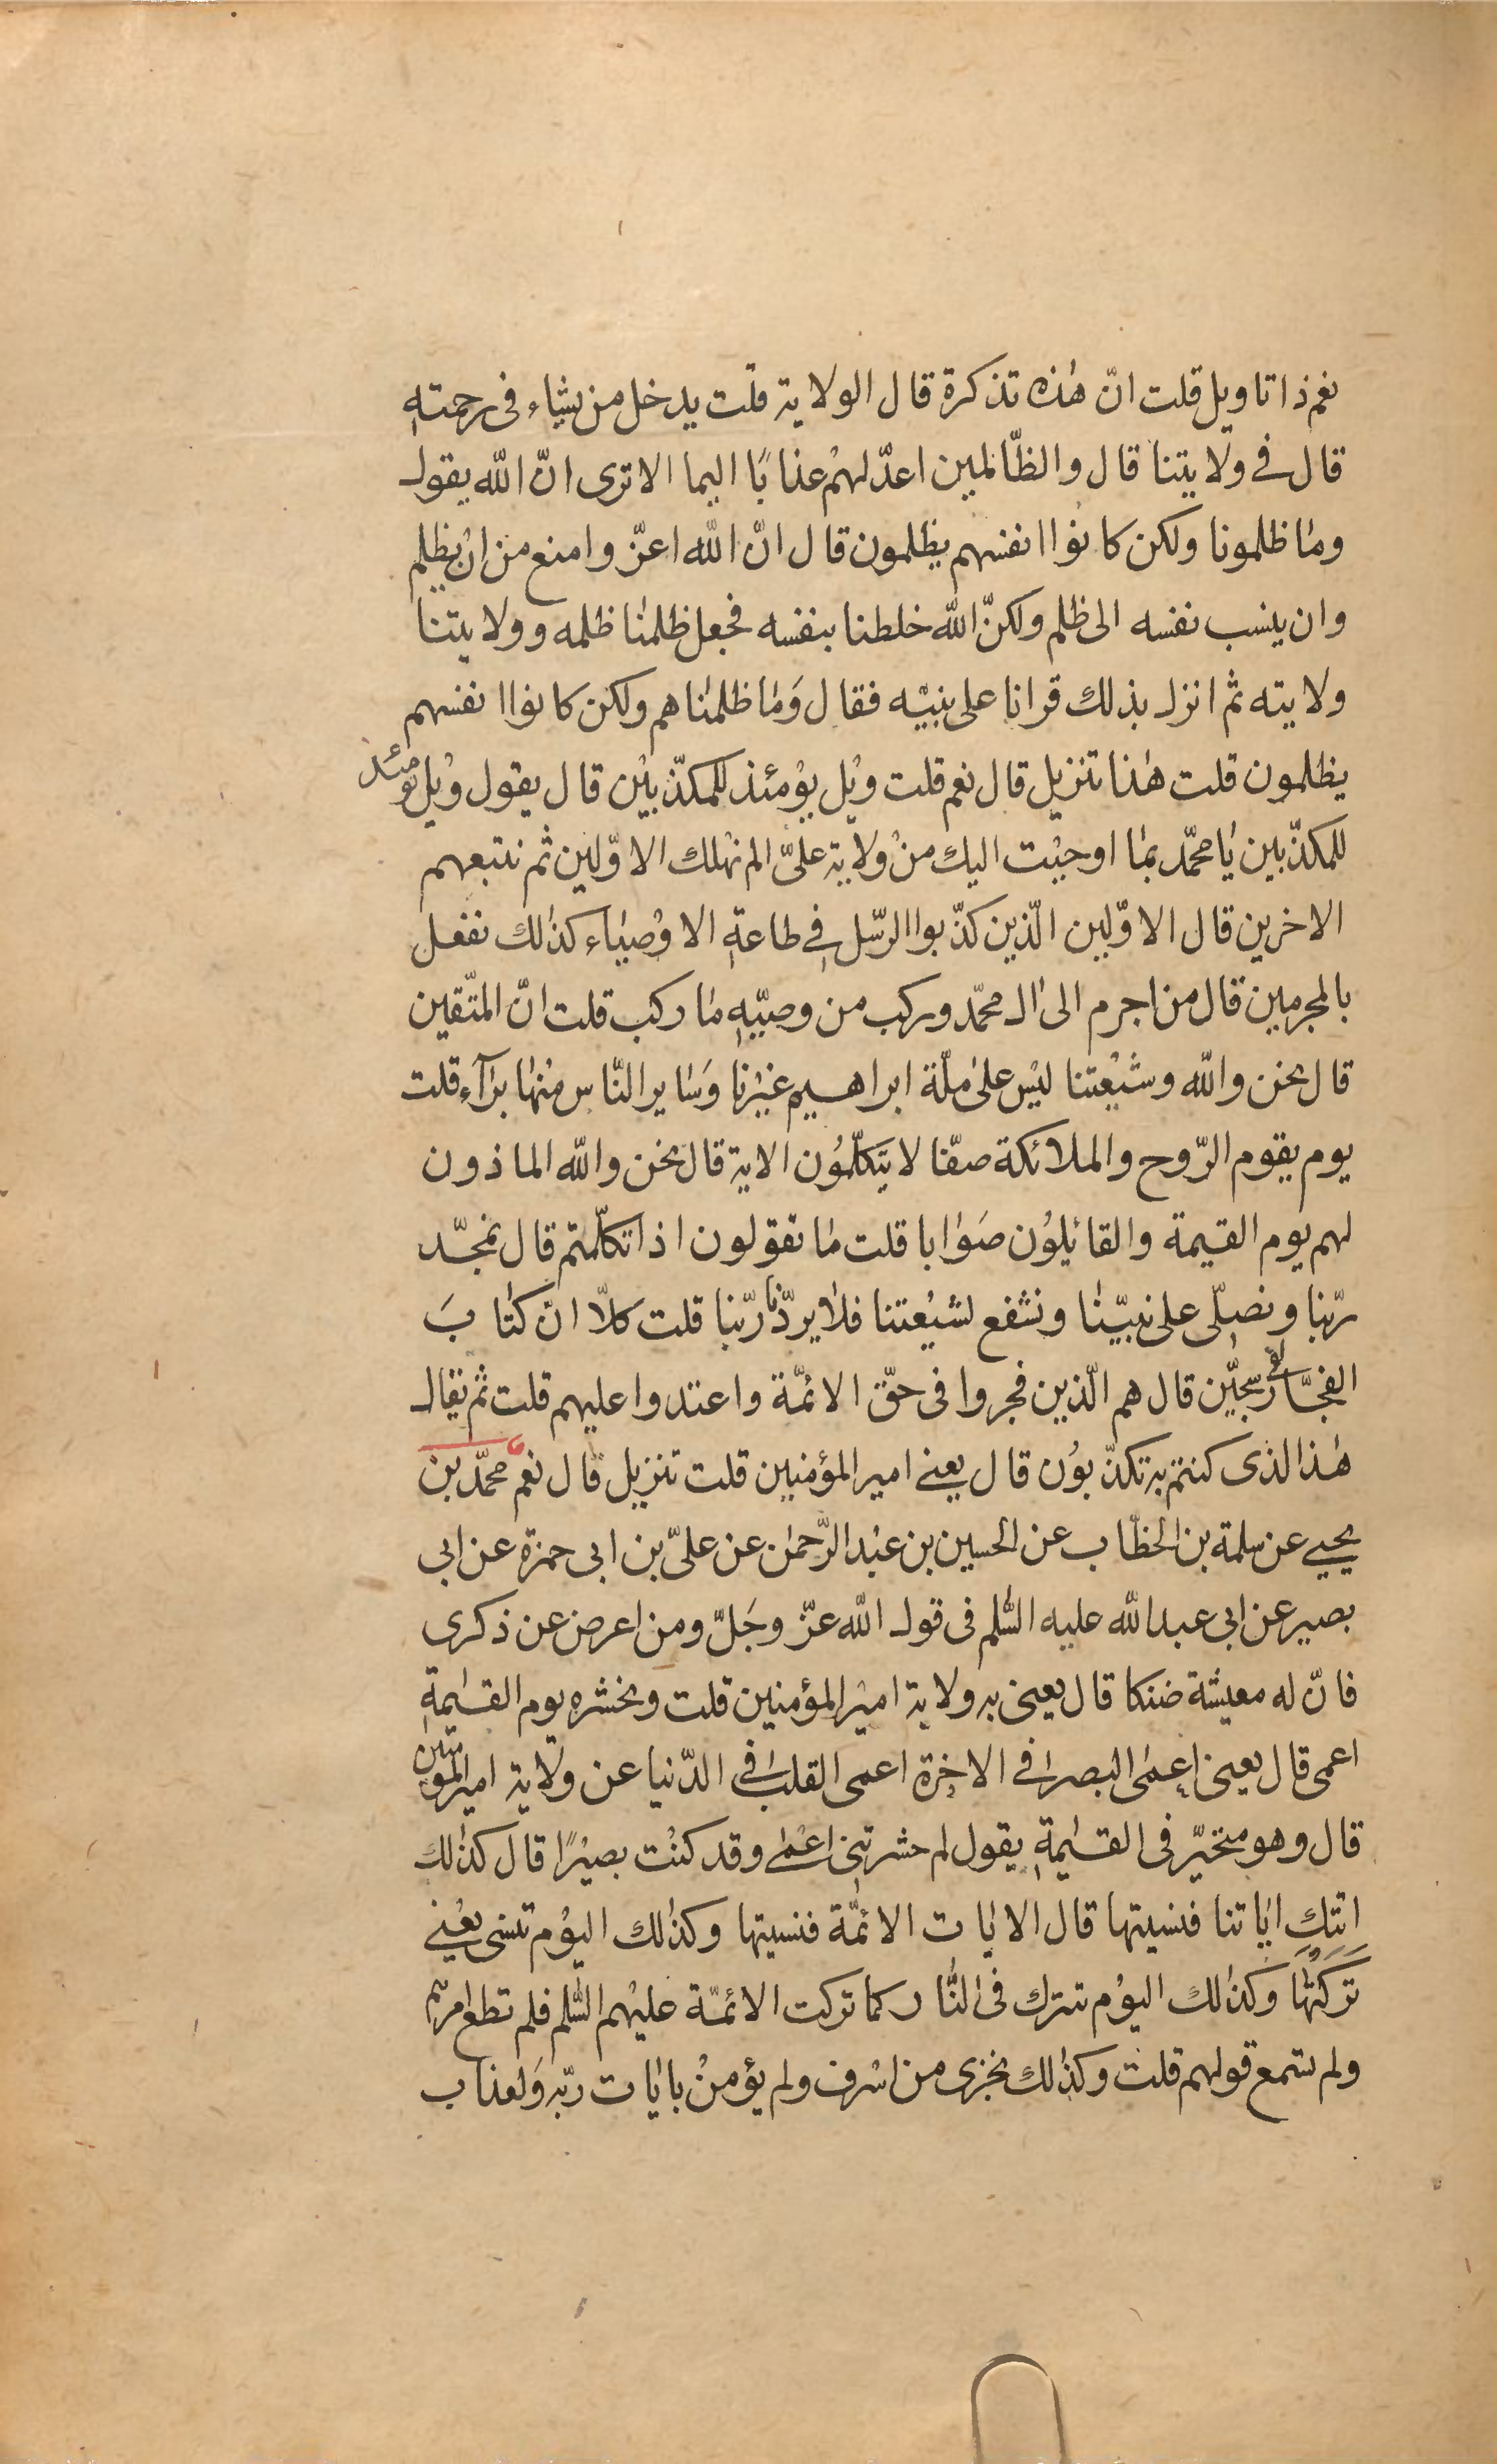 نعم ذا تاويل قلت انّ هذه تذكرة قال الولاية قلت يدخل من يشاء فى رحمته
قال فى ولايتنا قال والظّالمين اعدّ لهم عذابًا اليما الا ترى انّ الله يقول
وما ظلمونا ولكن كانوا انفسهم يظلمون قال انّ الله اعزّ وامنع من ان يظلم
وان ينسب نفسه الى ظلم ولكنّ الله خلطنا بنفسه فجعل ظلمنا ظلمه وولايتنا
ولايته ثم انزل بذلك قرانا على نبيّه فقال وَما ظلمناهم ولكن كانوا انفسهم
يظلمون قلت هذا تنزيل قال نعم قلت ويْل يوْمئذ للمكذّبيْن قال يقول ويْل يومئذ
للمكذّبين يا محمّد بما اوحيْت اليك منْ ولاية علىّ الم نهْلك الاوّلين ثم نتبعهم
الاخرين قال الاوّلين الّذين كذّبوا الرّسل فى طاعة الاوْصياء كذلك نفعل
بالمجرمين قال من اجرم الى ال محمّد وركب من وصيّه ما ركب قلت انّ المتّقين
قال نحن والله وشيْعتنا ليْس على ملّة ابراهيم غيْرنا وَساير النّاس منْها برآء قلت
يوم يقوم الرّوح والملائكة صفّا لا يَتكلّموُن الاية قال نحن والله الماذون
لهم يوم القيمة والقائيلوُن صَوابا قلت ما تقولون اذا تكلّمتم قال نمجّد
ربّنا ونصلّى على نبيّنا ونشفع لشيْعتنا فلا يردّنا ربّنا قلت كلاّ انّ كتابَ
الفجَّار لفى سجّين قال هم الّذين فجروا فى حقّ الائمّة واعتدوا عليهم قلت ثم يقال
هذا لذى كنتم به تكذّبوُن قال يعنى امير المؤمنين قلت تنزيل قال نعم محمّد بن
يحيى عن سلمة بن الخطّاب عن الحسين بن عبْد الرّحمن عن علىّ بن ابى حمزه عن ابى
بصير عن ابى عبد الله عليه السّلم فى قول الله عزّ وجَلّ ومن اعرض عن ذكرى
فانّ له معيشة ضنكا قال يعنى به ولاية اميْر المؤمنين قلت ونحشره يوم القيمة
اعمى قال يعنى اعمى البصر فى الاخرة اعمى القلب فى الدّنيا عن ولاية امير المؤمنين
قال وهو متحيّر فى القيمة يقول لم حشرتنى اعْمى وقد كنْت بصيْرًا قال كذلك
اتتك اياتنا فنسيتها قال الايات الائمّة فنسيتها وكذلك اليوْم تنسى يعْنى
تَركْتَهَا وكذلك اليوْم تترك فى النّار كما تركت الائمّة عليْهم السّلم فلم تطع امرهم
ولم تسمع قولهم قلت وكذلك نجزى من اسْرف ولم يؤمنْ بايات ربّه وَلعذاب